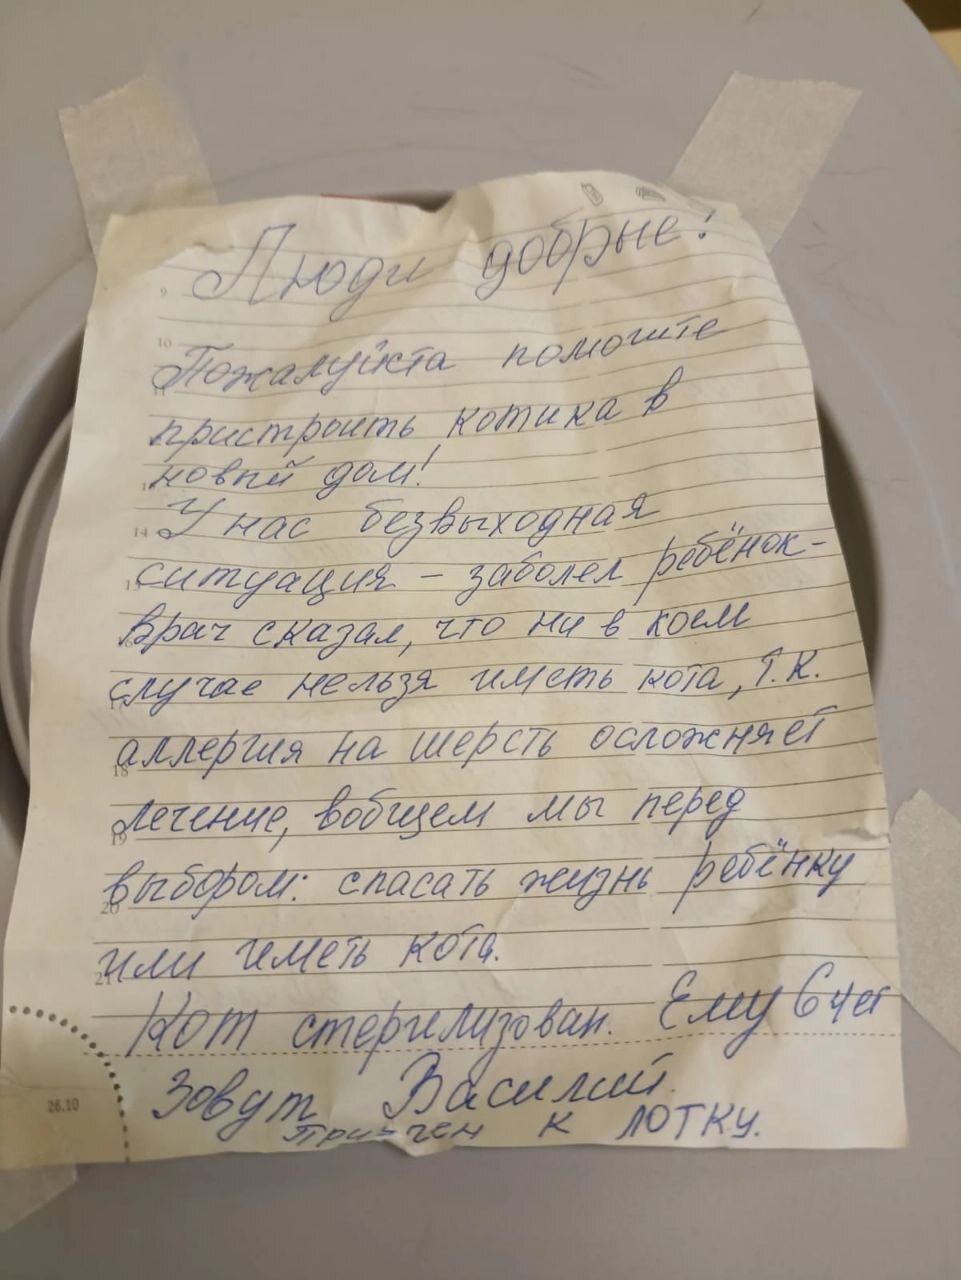 Люди добрые!
9
10
Пожалуйста помогите
11
пристроить котика в
новый дом!
14
У нас безвыходная
ситуация - заболел ребёнок-
врач сказал, что ни в коем
случае нельзя иметь кота, т.к.
аллергия на шерсть осложняет
18
лечение, вобщем мы перед
19
выбором: спасать жизнь ребёнку
20
или иметь кота.
21
Кот стерилизован. Ему 6 лет
26.10
Зовут Василий.
к лотку.